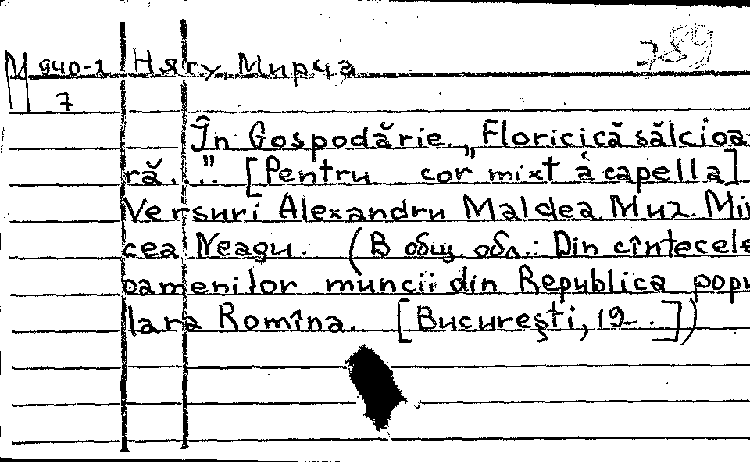 789
М 940-1 Нягу, Мирча
7
În Gospodărie „Floricică sălcioa
ră. ". [Pentru cor mixt a capella]
Versuri Alexandru Maldea Muz. Mir
cea Neagu. (В общ обл.: Din cîntecele
oamenilor muncii din Republica popu
lara Romîna. [Bucureşti, 19_ . ])